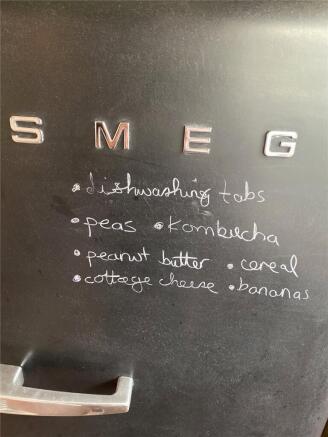 SMEG
• dishwashing tabs
• peas • Kombucha
• peanut butter • cereal
• cottage cheese • bananas